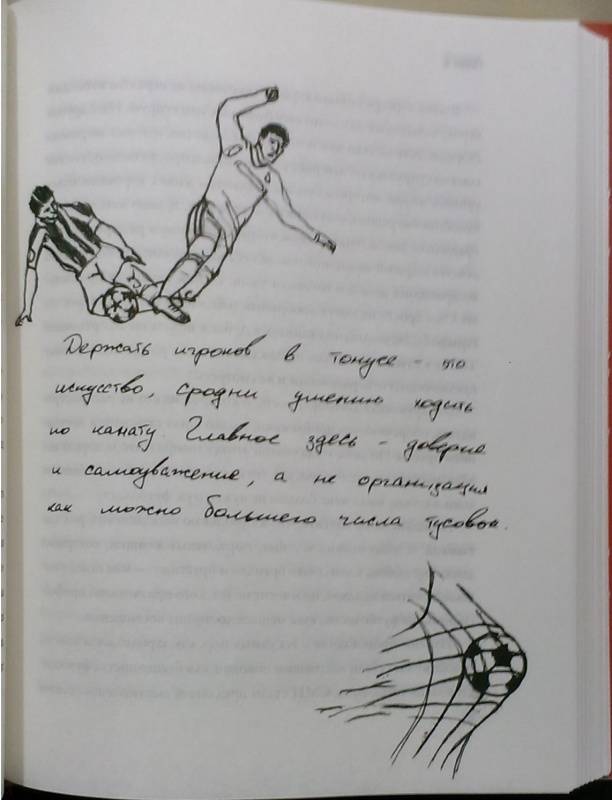 Держать игроков в тонусе – это
искусство, сродни умению ходить
по канату. Главное здесь – доверие
и самоуважение, а не организация
как можно большего числа тусовок.